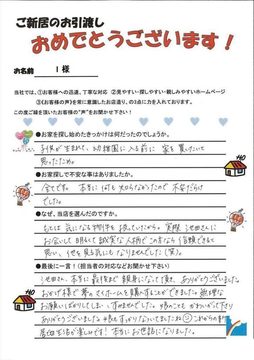 ご新居のお引渡し
おめでとうございます！
お名前 I 様
当社では、①お客様への迅速、丁寧な対応 ②見やすい・探しやすい・親しみやすいホームページ
③《お客様の声》を常に意識したお店造り、の3点に力を入れております。
この度ご縁を頂いたお客様の"声"をお聞かせ下さい！
●お家を探し始めたきっかけは何だったのでしょうか。
子供が生まれて、幼稚園に入る前に家を買いたいと
思ったため。
●お家探しで不安な事はありましたか。
全てです。本当に何も分からなかったので不安だらけ
でした。
●なぜ、当店を選んだのですか。
もとは気になる物件を扱っていたから。実際に池田さんに
お会いして明るくて誠実な人柄がこの方なら信頼できると
思い、他を見る気にもなりませんでした（笑）。
●最後に一言！（担当者の対応などお聞かせ下さい）
池田さん、本当に最後まで親身になって頂き、ありがとうございました。
おかげ様で夢のマイホームを購入することができました。無理な
お願いばかりしてしまい、すみませんでした。
ありがとうございました。
新居生活が楽しみです！本当にお世話になりました。